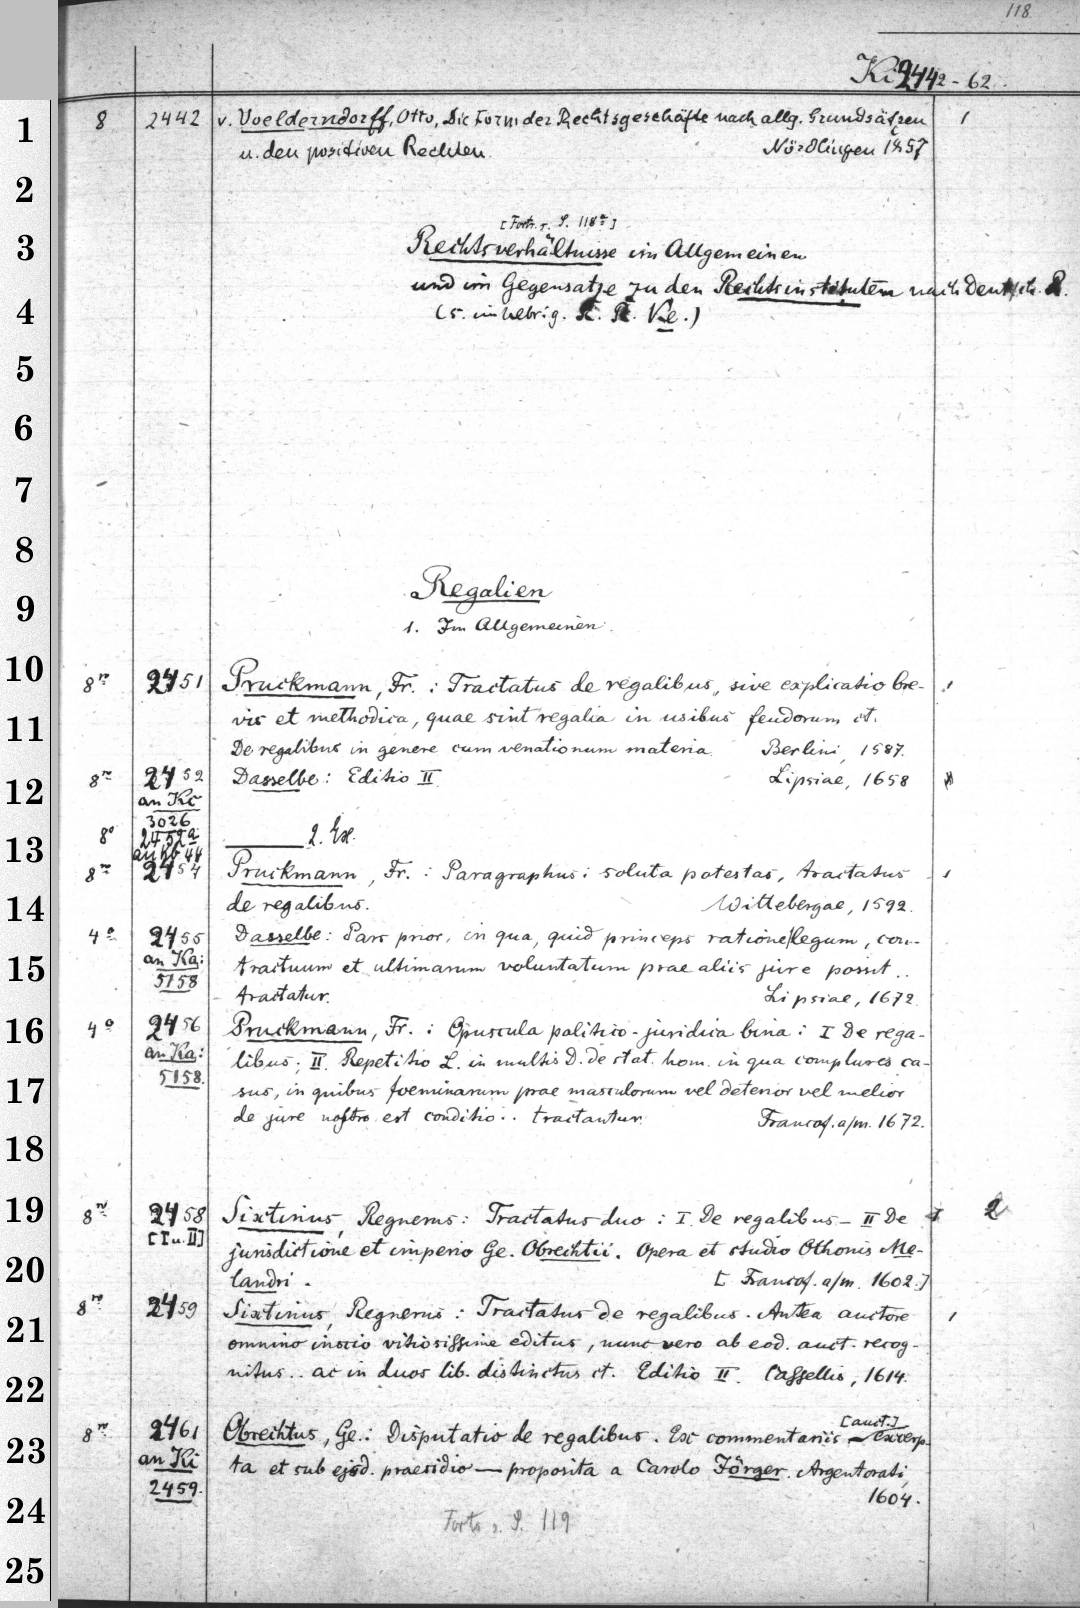 118
Ki 2442-62.
8 2442 v. Voelderndorff, Otto, Die Form der Rechtsgeschäfte nach allg. Grundsätzen 1
u. den positiven Rechten. Nördlingen 1857
[Forts. s. S. 118a]
Rechtsverhältnisse im Allgemeinen
und im Gegensatze zu den Rechtsinstituten nach Deutsch. R.
(s. im Uebrig. Ke.)
Regalien
1. Im Allgemeinen.
8° 2451 Pruckmann, Fr.: Tractatus de regalibus, sive explicatio bre- 1
vis et methodica, quae sint regalia in usibus feudorum et.
De regalibus in genere cum venationum materia. Berlini, 1587.
8° 2452 Dasselbe: Editio II. Lipsiae, 1658
an Kc
3026
8° 2452a 2. Ex.
an Kb 44
8° 2454 Pruckmann, Fr.: Paragraphus: soluta potestas, tractatus 1
de regalibus. Wittebergae, 1592.
4° 2455 Dasselbe: Pars prior, in qua, quid princeps ratione legum, con-
an Ka: tractuum et ultimarum voluntatum prae aliis jure possit..
5158 tractatur. Lipsiae, 1672.
4° 2456 Pruckmann, Fr.: Opuscula politico-juridica bina: I De rega-
an Ka: libus; II. Repetitio L. in multis D. de stat. hom. in qua complures ca-
5158. sus, in quibus foeminarum prae masculorum vel deterior vel melior
de jure nostro est conditio.. tractantur. Francof. a/m. 1672.
8° 2458 Sixtinus, Regnerus: Tractatus duo: I. De regalibus - II De 2
[I u. II] jurisdictione et imperio Ge. Obrechtii. Opera et studio Othonis Me-
landri. [Francof. a/m. 1602.]
8° 2459 Sixtinus, Regnerus: Tractatus de regalibus. Antea auctore 1
omnino inscio vitiosissime editus, nunc vero ab eod. auct. recog-
nitus.. ac in duos lib. distinctus et. Editio II. Cassellis, 1614.
[auct.]
8° 2461 Obrechtus, Ge.: Disputatio de regalibus. Ex commentariis - excerp-
an Ki ta et sub ejsd. praesidio — proposita a Carolo Förger. Argentorati,
2459. 1604.
Forts. s. S. 119
1
2
3
4
5
6
7
8
9
10
11
12
13
14
15
16
17
18
19
20
21
22
23
24
25